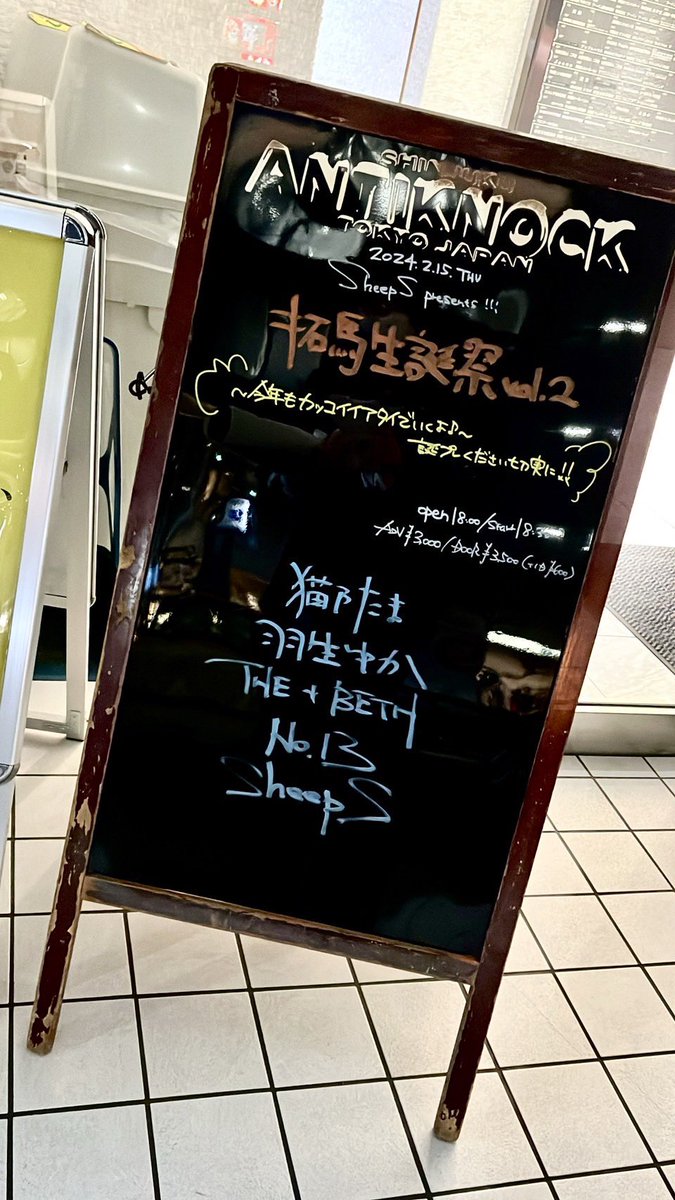 SHINJUKU
ANTIKNOCK
TOKYO JAPAN
2024.2.15.THU
SheepS presents!!!
拓馬生誕祭 vol.2
〜今年もカッコイイアタイでいくよ♪〜
誕プレください切実に!!
open18:00/Start18:30
ADV¥3,000/DOOR¥3,500(+1D¥600)
猫乃たま
羽生ゆか
THE + BETH
No.13
SheepS